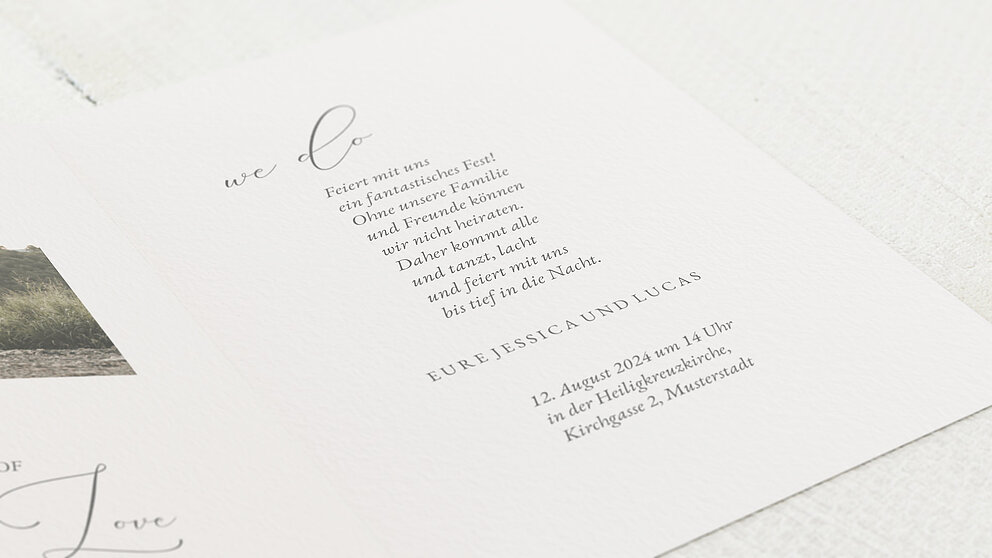 we do
Feiert mit uns
ein fantastisches Fest!
Ohne unsere Familie
und Freunde können
wir nicht heiraten.
Daher kommt alle
und tanzt, lacht
und feiert mit uns
bis tief in die Nacht.
EURE JESSICA UND LUCAS
12. August 2024 um 14 Uhr
in der Heiligkreuzkirche,
Kirchgasse 2, Musterstadt
OF
Love